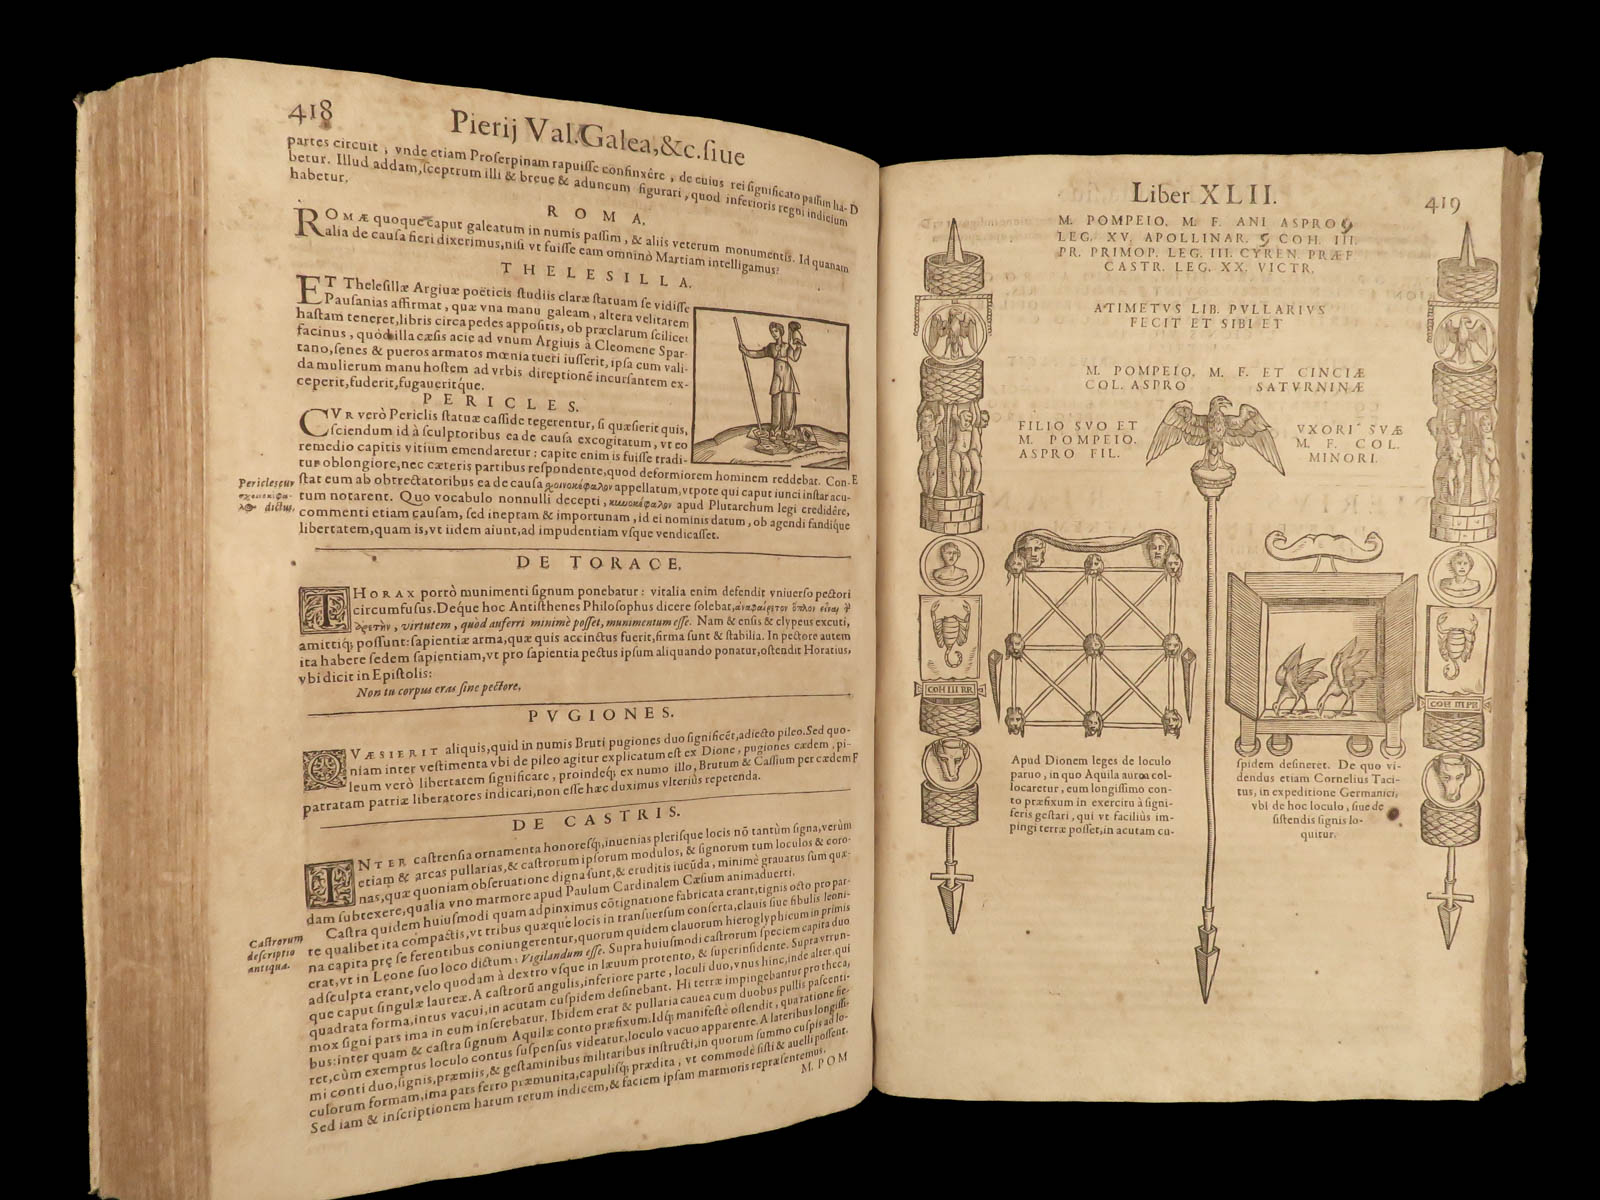 418
Pierij Val. Galea, &c. ſiue
partes circuit, vnde etiam Proſerpinam rapuiſſe confinxêre, de cuius rei ſignificato paſſim ha- D
betur. Illud addam, ſceptrum illi & breue & aduncum figurari, quod inferioris regni indicium
habetur.
R O M A.
ROMÆ quoque caput galeatum in numis paſſim, & aliis veterum monumentis. Id quanam
alia de cauſa fieri dixerimus, niſi vt fuiſſe eam omninò Martiam intelligamus?
T H E L E S I L L A.
ET Theleſillæ Argiuæ poëticis ſtudiis claræ ſtatuam ſe vidiſſe
Pauſanias affirmat, quæ vna manu galeam, altera velitarem
haſtam teneret, libris circa pedes appoſitis, ob præclarum ſcilicet
facinus, quòd illa cæſis acie ad vnum Argiuis à Cleomene Spar-
tano, ſenes & pueros armatos mœnia tueri iuſſerit, ipſa cum vali-
da mulierum manu hoſtem ad vrbis direptionē incurſantem ex-
ceperit, fuderit, fugaueritque.
P E R I C L E S.
CVR verò Periclis ſtatuæ caſſide tegerentur, ſi quæſierit quis,
ſciendum id à ſculptoribus ea de cauſa excogitatum, vt eo
remedio capitis vitium emendaretur: capite enim is fuiſſe tradi-
tur oblongiore, nec cæteris partibus reſpondente, quod deformiorem hominem reddebat. Con- E
ſtat eum ab obtrectatoribus ea de cauſa σχοινοκέφαλον appellatum, vtpote qui caput iunci inſtar acu-
tum notarent. Quo vocabulo nonnulli decepti, κυνοκέφαλον apud Plutarchum legi credidêre,
commenti etiam cauſam, ſed ineptam & importunam, id ei nominis datum, ob agendi fandíque
libertatem, quam is, vt iidem aiunt, ad impudentiam vſque vendicaſſet.
Periclescur
σχοινοκέφα-
λος dictus.
DE TORACE.
THORAX porrò munimenti ſignum ponebatur: vitalia enim defendit vniuerſo pectori
circumfuſus. Deque hoc Antiſthenes Philoſophus dicere ſolebat, ἀναφαίρετον ὅπλον εἶναι τ̀
ἀρετὴν, virtutem, quòd auferri minimè poſſet, munimentum eſſe. Nam & enſis & clypeus excuti,
amittiq; poſſunt: ſapientiæ arma, quæ quis accinctus fuerit, firma ſunt & ſtabilia. In pectore autem
ita habere ſedem ſapientiam, vt pro ſapientia pectus ipſum aliquando ponatur, oſtendit Horatius,
vbi dicit in Epiſtolis:
Non tu corpus eras ſine pectore.
PVGIONES.
QVÆSIERIT aliquis, quid in numis Bruti pugiones duo ſignificēt, adiecto pileo. Sed quo-
niam inter veſtimenta vbi de pileo agitur explicatum eſt ex Dione, pugiones cædem, pi-
leum verò libertatem ſignificare, proindeq; ex numo illo, Brutum & Caſſium per cædem F
patratam patriæ liberatores indicari, non eſſe hæc duximus vlterius repetenda.
DE CASTRIS.
INTER caſtrenſia ornamenta honoreſq;, inuenias pleriſque locis nō tantùm ſigna, verùm
etiam & arcas pullarias, & caſtrorum ipſorum modulos, & ſignorum tum loculos & coro-
nas, quæ quoniam obſeruatione digna ſunt, & eruditis iucūda, minimè grauatus ſum quæ-
dam ſubtexere, qualia vno marmore apud Paulum Cardinalem Cæſium animaduerti.
Caſtra quidem huiuſmodi quam adpinximus cōtignatione fabricata erant, tignis octo pro par-
te qualibet ita compactis, vt tribus quæque locis in tranſuerſum conſerta, clauis ſiue fibulis leoni-
na capita pre ſe ferentibus coniungerentur, quorum quidem clauorum hieroglyphicum in primis
erat, vt in Leone ſuo loco dictum: Vigilandum eſſe. Supra huiuſmodi caſtrorum ſpeciem capita duo
adſculpta erant, velo quodam à dextro vſque in læuum protento, & ſuperinſidente. Supra vtrun-
que caput ſingulæ laureæ. A caſtrorū angulis, inferiore parte, loculi duo, vnus hinc, inde alter, qui
quadrata forma, intus vacui, in acutam cuſpidem deſinebant. Hi terræ impingebantur pro theca,
mox ſigni pars ima in eum inſerebatur. Ibidem erat & pullaria cauea cum duobus pullis paſcenti-
bus: inter quam & caſtra ſignum Aquilæ conto præfixum. Idq; manifeſtè oſtendit, qua ratione fie-
ret, cùm exemptus loculo contus ſuſpenſus videatur, loculo vacuo apparente. A lateribus longiſſi-
mi conti duo, ſignis, præmiis, & geſtaminibus militaribus inſtructi, in quorum ſummo cuſpis ad lo-
culorum formam, ima pars ferro præmunita, capuliſq; prædita, vt commodè ſiſti & auelli poſſent.
Sed iam & inſcriptionem harum rerum indicem, & faciem ipſam marmoris repræſentemus.
Caſtrorum
deſcriptio
antiqua.
M. POM
Liber XLII.
419
M. POMPEIO, M. F. ANI ASPRO
LEG. XV. APOLLINAR. COH. III.
PR. PRIMOP. LEG. III. CYREN. PRÆF
CASTR. LEG. XX. VICTR.
ATIMETVS LIB. PVLLARIVS
FECIT ET SIBI ET
M. POMPEIO, M. F. ET CINCIÆ
COL. ASPRO SATVRNINÆ
FILIO SVO ET
M. POMPEIO.
ASPRO FIL.
VXORI SVÆ
M. F. COL.
MINORI.
COH III PR
COH III PR
Apud Dionem leges de loculo
paruo, in quo Aquila aurea col-
locaretur, eum longiſſimo con-
to præfixum in exercitu à ſigni-
feris geſtari, qui vt facilius im-
pingi terræ poſſet, in acutam cu-
ſpidem deſineret. De quo vi-
dendus etiam Cornelius Taci-
tus, in expeditione Germanici,
vbi de hoc loculo, ſiue de
ſiſtendis ſignis lo-
quitur.